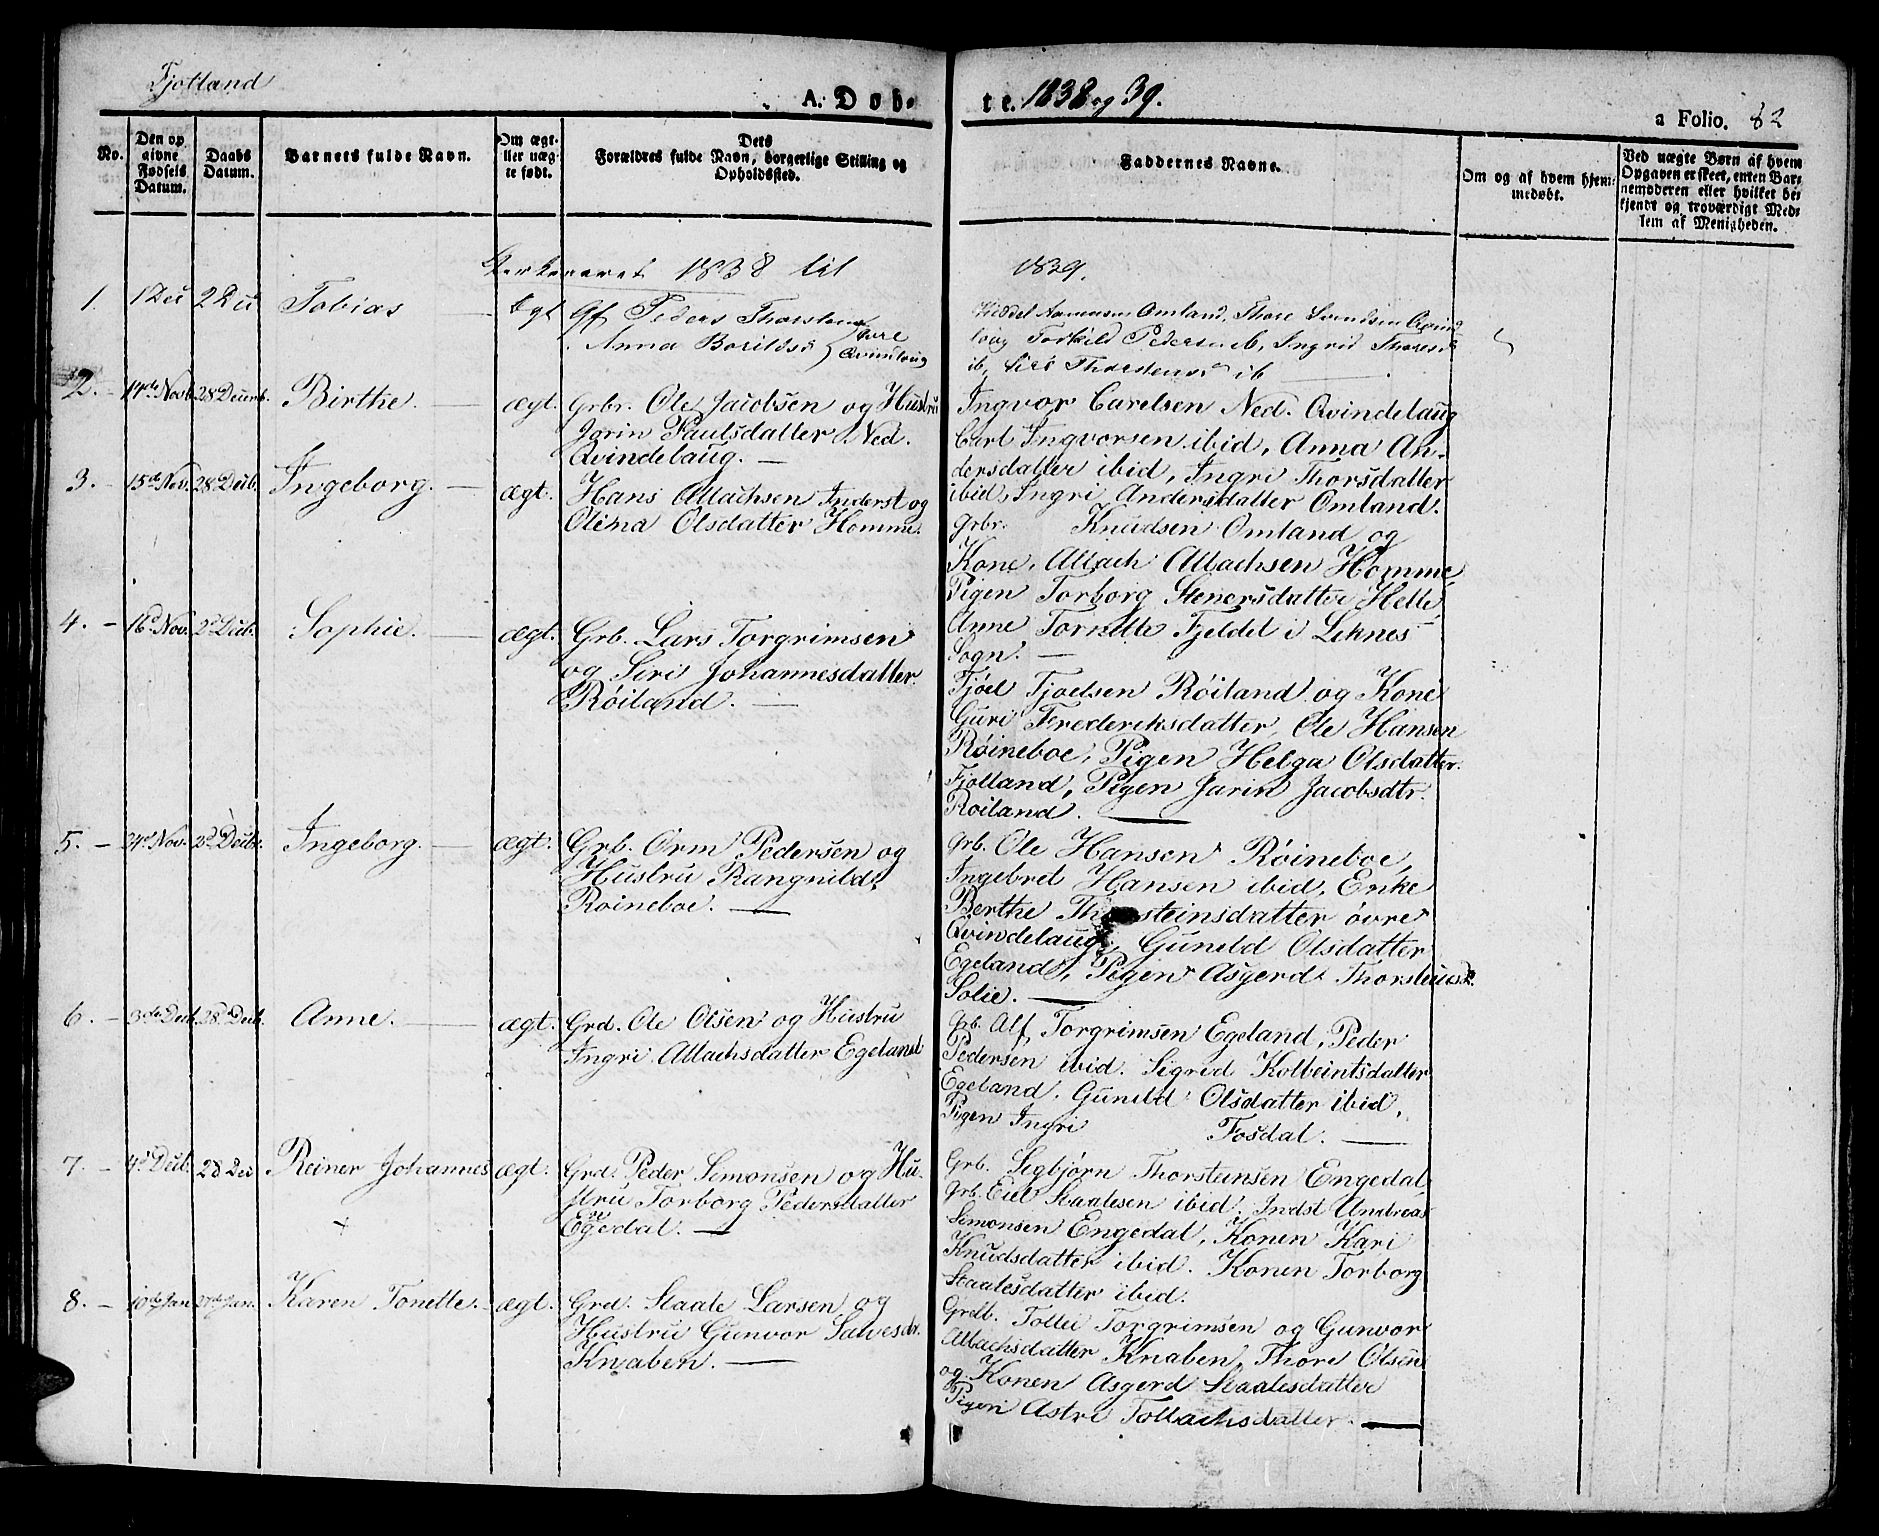 Fjotland
A. Døb-
te. 1838 og 39.
a Folio. 82
No.
Den op
givne
Fødsels
Datum.
Daabs
Datum.
Barnets fulde Navn.
Om ægte
ller uæg-
te født.
Dets
Forældres fulde Navn, borgerlige Stilling og
Opholdssted.
Faddernes Navne.
Om og af hvem hjem-
medøbt.
Ved uægte Børn af hvem
Opgaven er skeet, enten Bar-
nemoderen eller hvilket be-
kjendt og troværdigt Med-
lem af Menigheden.
Kirkeaaret 1838 til
1839.
1.
1 Dec
2 Dec
Tobias
Egt
Gf Peders Thorsten
Anna Borilds
øvre
Qvindlaug
Aamasen Omland, Thore Svendsen Qvind
laug Torkild Pedersen ib, Ingrid Thores
ib, Siri Thorstens ib
2. -
14de Novb.
28 Decemb.
Birthe.
ægt.
Grbr. Ole Jacobsen og Hustru
Jorin Paulsdatter Ned.
Qvindelaug.
Ingvor Carelsen Ned. Qvindelaug
Carl Ingvorsen ibid, Anna An-
dersdatter ibid, Ingri Thorsdatter
ibid, Ingri Andersdatter Omland.
3. -
15de Nov.
28 Decb.
Ingeborg.
ægt.
Hans Atlachsen Inderst og
Olena Olsdatter Homme.
Grbr. Knudsen Omland og
Kone, Atlach Atlachsen Homme,
Pigen Torborg Stenersdatter Helle
Anne Tornette Fjeldet i Leknes
Sogn.
4. -
16d Nov.
2d Decb.
Sophie.
ægt.
Grb. Lars Torgrimsen
og Siri Johannesdatter
Røiland.
Fjøel Tjoelsen Røiland og Kone
Guri Frederiksdatter, Ole Hansen
Røineboe, Pigen Helga Olsdatter
Fjotland, Pigen Jarin Jacobsdtr.
Røiland.
5. -
24d Nov.
2d Decbr.
Ingeborg.
ægt.
Grb. Orm Pedersen og
Hustru Rangnild
Røineboe.
Grb. Ole Hansen Røineboe,
Ingebret Hansen ibid, Enke
Berthe Thorsteinsdatter øvre
Qvindelaug, Gunild Olsdatter
Egeland, Pigen Asgerd Thorsteinsd.
Solie.
6. -
3de Decb.
28d Decb.
Anne.
ægt.
Grd. Ole Olsen og Hustru
Ingri Atlachsdatter Egeland
Grb. Alf Torgrimsen Egeland, Peder
Pedersen ibid. Sigrid Kolbeintsdatter
Egeland, Gunild Olsdatter ibid,
Pigen Ingri Fosdal.
7. -
4d Decb.
28 Dec
Reiner Johannes
ægt.
Grd. Peder Simonsen og Hu-
stru Torborg Pedersdatter
Egedal.
Grb. Segbjørn Thorsteinsen Engedal,
Grb. Eiel Staalesen ibid. Indst Andreas
Simonsen Engedal, Konen Kari
Knudsdatter ibid. Konen Torborg
Staalesdatter ibid.
8. -
10de Jan
27de Jan.
Karen Tonette.
ægt.
Grd. Staale Larsen og
Hustru Gunvor Salvesdr.
Knaben.
Grdb. Tollei Torgrimsen og Gunvor
Atlachsdatter Knaben, Thore Olsen
og Konen Asgerd Staalesdatter
Pigen Astri Tollachsdatter.